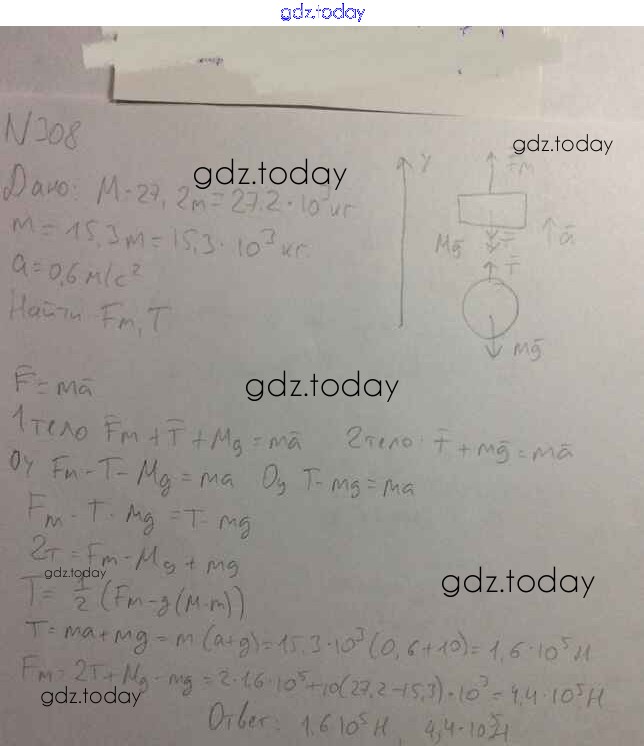 gdz.today
N308
gdz.today
Дано: M = 27,2т = 27.2 · 10³ кг
m = 15,3т = 15,3 · 10³ кг.
a = 0,6 м/с²
Найти Fт, T
gdz.today
Y
Fт
a̅
Mg̅
T̅
T̅
mg̅
F̅ = ma̅
gdz.today
1 тело F̅т + T̅ + Mg = ma̅ 2 тело: T̅ + mg̅ = ma̅
Oy Fт - T - Mg = ma Oy T - mg = ma
Fт - T - Mg = T - mg
2T = Fт - Mg + mg
gdz.today
gdz.today
T = 1/2 (Fт - g(M-m))
T = ma + mg = m(a+g) = 15,3 · 10³ (0,6+10) = 1,6 · 10⁵ Н
Fт = 2T + Mg - mg = 2 · 1,6 · 10⁵ + 10(27,2-15,3) · 10³ = 4,4 · 10⁵ Н
gdz.today
Ответ: 1.6 10⁵ Н, 4,4 · 10⁵ Н